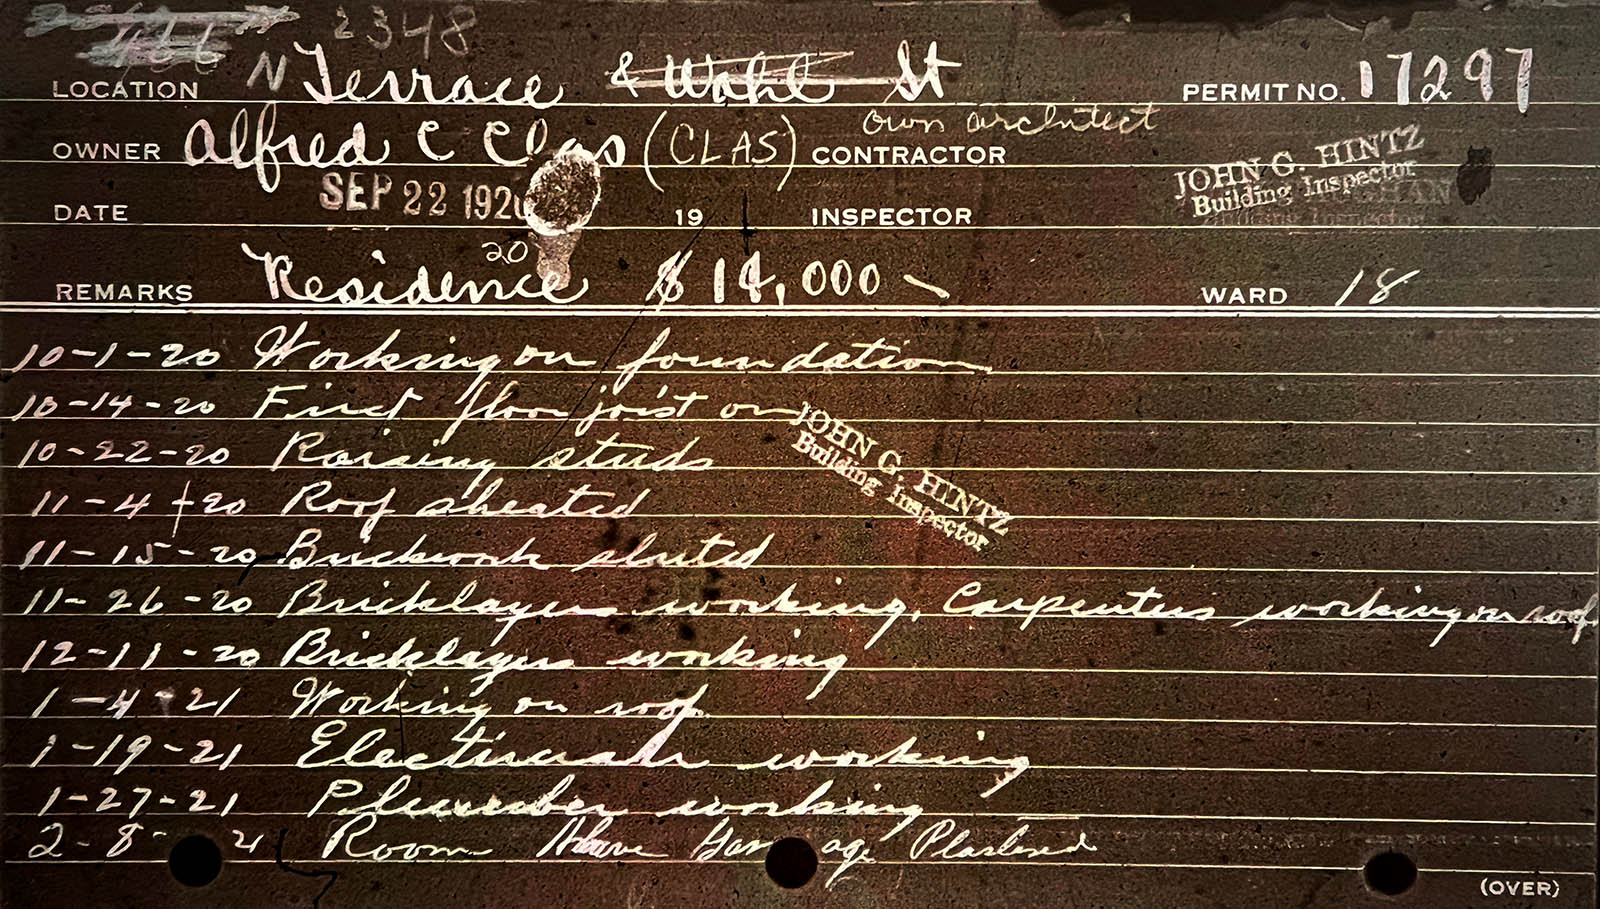 2348
466
LOCATION N Terrace & Wahl St PERMIT NO. 17297
own architect
OWNER Alfred C Clas (CLAS) CONTRACTOR
JOHN G. HINTZ
Building Inspector
DATE SEP 22 1920 19 INSPECTOR
20
REMARKS Residence $14,000 – WARD 18
10-1-20 Working on foundation
10-14-20 First floor joist on
JOHN G. HINTZ
Building Inspector
10-22-20 Raising studs
11-4-20 Roof sheated
11-15-20 Brickwork started
11-26-20 Bricklayers working, Carpenters working on roof
12-11-20 Bricklayers working
1-4-21 Working on roof
1-19-21 Electrician working
1-27-21 Plumber working
2-8-21 Room Above Garage Plastered
(OVER)